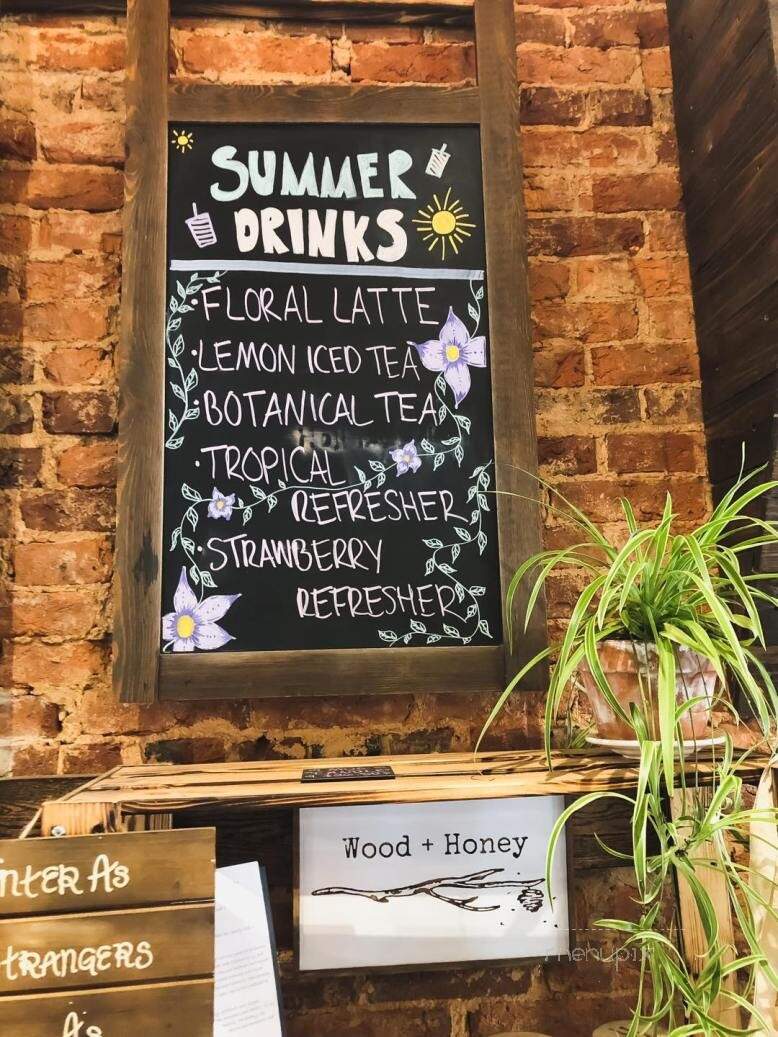 SUMMER
DRINKS
·FLORAL LATTE
·LEMON ICED TEA
·BOTANICAL TEA
·TROPICAL
REFRESHER
·STRAWBERRY
REFRESHER
Wood + Honey
NTER AS
TRANGERS
AS
menupix